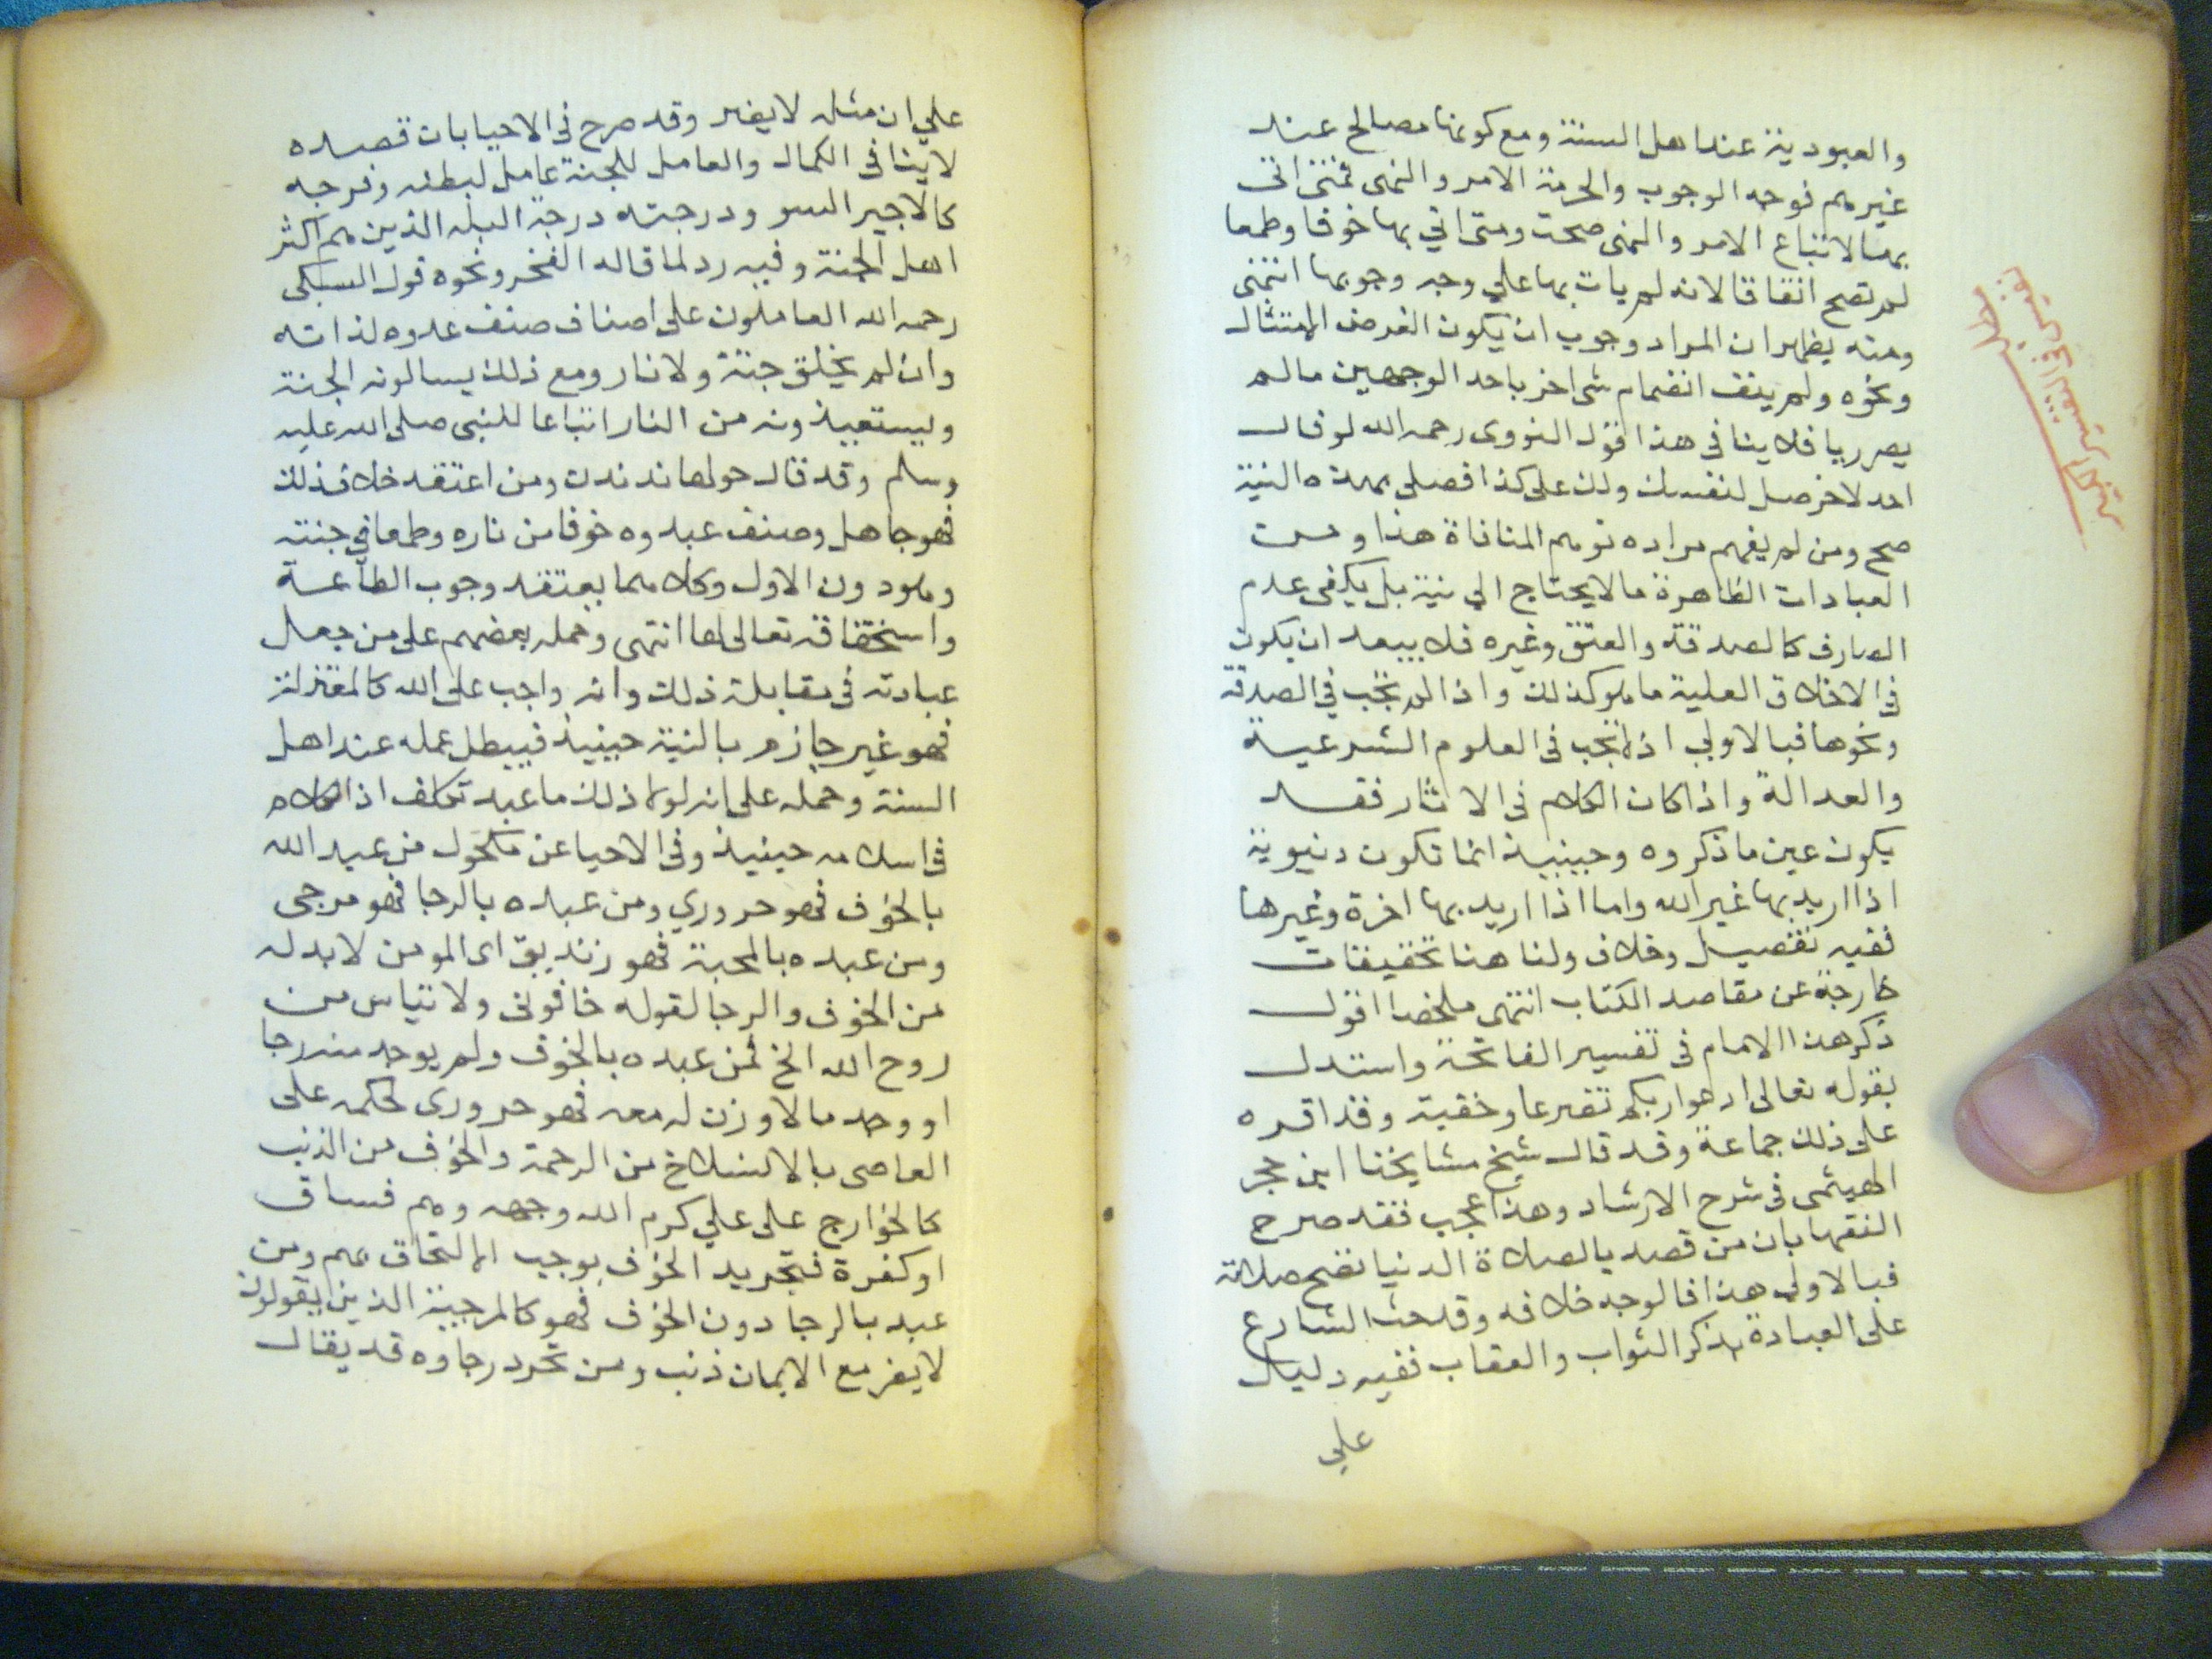 والعبودية عند اهل السنة ومع كونها مصالح عند
غيرهم فوجه الوجوب والحرمة الامر والنهى فمتى اتى
بها لاتباع الامر والنهى صحت ومتى اتي بها خوفا وطمعا
لم تصح اتفاقا لانه لم يات بها علي وجه وجوبها انتهى
ومنه يظهر ان المراد وجوب ان يكون الغرض الامتثال
ونحوه ولم ينف انضمام شى اخر باحد الوجهين مالم
يصر ريا فلا ينافي هذا قول النووى رحمه الله لو قال
احد لاخر صل لنفسك ولك على كذا فصلى بهذه النية
صح ومن لم يفهم مراده توهم المنافاة هذا ومن
العبادات الظاهرة مالا يحتاج الي نية بل يكفى عدم
الصارف كالصدقة والعتق وغيره فلا يبعد ان يكون
في الاخلاق العلية ما هو كذلك واذا لم تجب في الصدقة
ونحوها فبالاولي اذ لا تجب فى العلوم الشرعية
والعدالة واذا كان الكلام فى الاثار فقد
يكون عين ما ذكروه وحينيذ انما تكون دنيوية
اذا اريد بها غير الله واما اذا اريد بها اخرة وغيرها
ففيه تفصيل وخلاف ولنا هنا تحقيقات
خارجة عن مقاصد الكتاب انتهى ملخصا اقول
ذكر هذا الامام فى تفسير الفاتحة واستدل
بقوله تعالى ادعوا ربكم تضرعا وخفية وقد اقره
على ذلك جماعة وقد قال شيخ مشايخنا ابن حجر
الهيثمى فى شرح الارشاد وهذا عجب فقد صرح
الفقها بان من قصد بالصلاة الدنيا تصح صلاته
فبالاولى هذا فالوجه خلافه وقد حث الشارع
على العبادة بذكر الثواب والعقاب ففيه دليل
علي
علي ان مثله لا يضر وقد صرح فى الاحيا بان قصده
لا ينافى الكمال والعامل للجنة عامل لبطنه وفرجه
كالاجير السو ودرجته درجة البله الذين هم اكثر
اهل الجنة وفيه رد لما قاله الفخر ونحوه قول السبكى
رحمه الله العاملون على اصناف صنف عبدوه لذاته
وان لم يخلق جنة ولا نار ومع ذلك يسالونه الجنة
ويستعيذونه من النار اتباعا للنبى صلى الله عليه
وسلم وقد قال حولها ندندن ومن اعتقد خلاف ذلك
فهو جاهل وصنف عبدوه خوفا من ناره وطمعا في جنته
وهو دون الاول وكلاهما يعتقد وجوب الطاعة
واستحقاقه تعالى لها انتهى وحمله بعضهم على من جعل
عبادته فى مقابلة ذلك وانه واجب على الله كالمعتزلة
فهو غير جازم بالنية حينيذ فيبطل عمله عند اهل
السنة وحمله على انه لولا ذلك ما عبد تكلف اذ الكلام
فى اسلامه حينيذ وفى الاحيا عن مكحول من عبد الله
بالخوف فهو حروري ومن عبده بالرجا فهو مرجى
ومن عبده بالمحبة فهو زنديق اى المومن لا بد له
من الخوف والرجا لقوله خافونى ولا تياس من
روح الله الخ فمن عبده بالخوف ولم يوجد منه رجا
او وجد مالا وزن له معه فهو حرورى لحكمه على
العاصى بالانسلاخ من الرحمة والخوف من الذنب
كالخوارج على علي كرم الله وجهه وهم فساق
او كفرة فتجريد الخوف يوجب الالتحاق بهم ومن
عبد بالرجا دون الخوف فهو كالمرجية الذين يقولون
لا يضر مع الايمان ذنب ومن تجرد رجاوه قد يقال